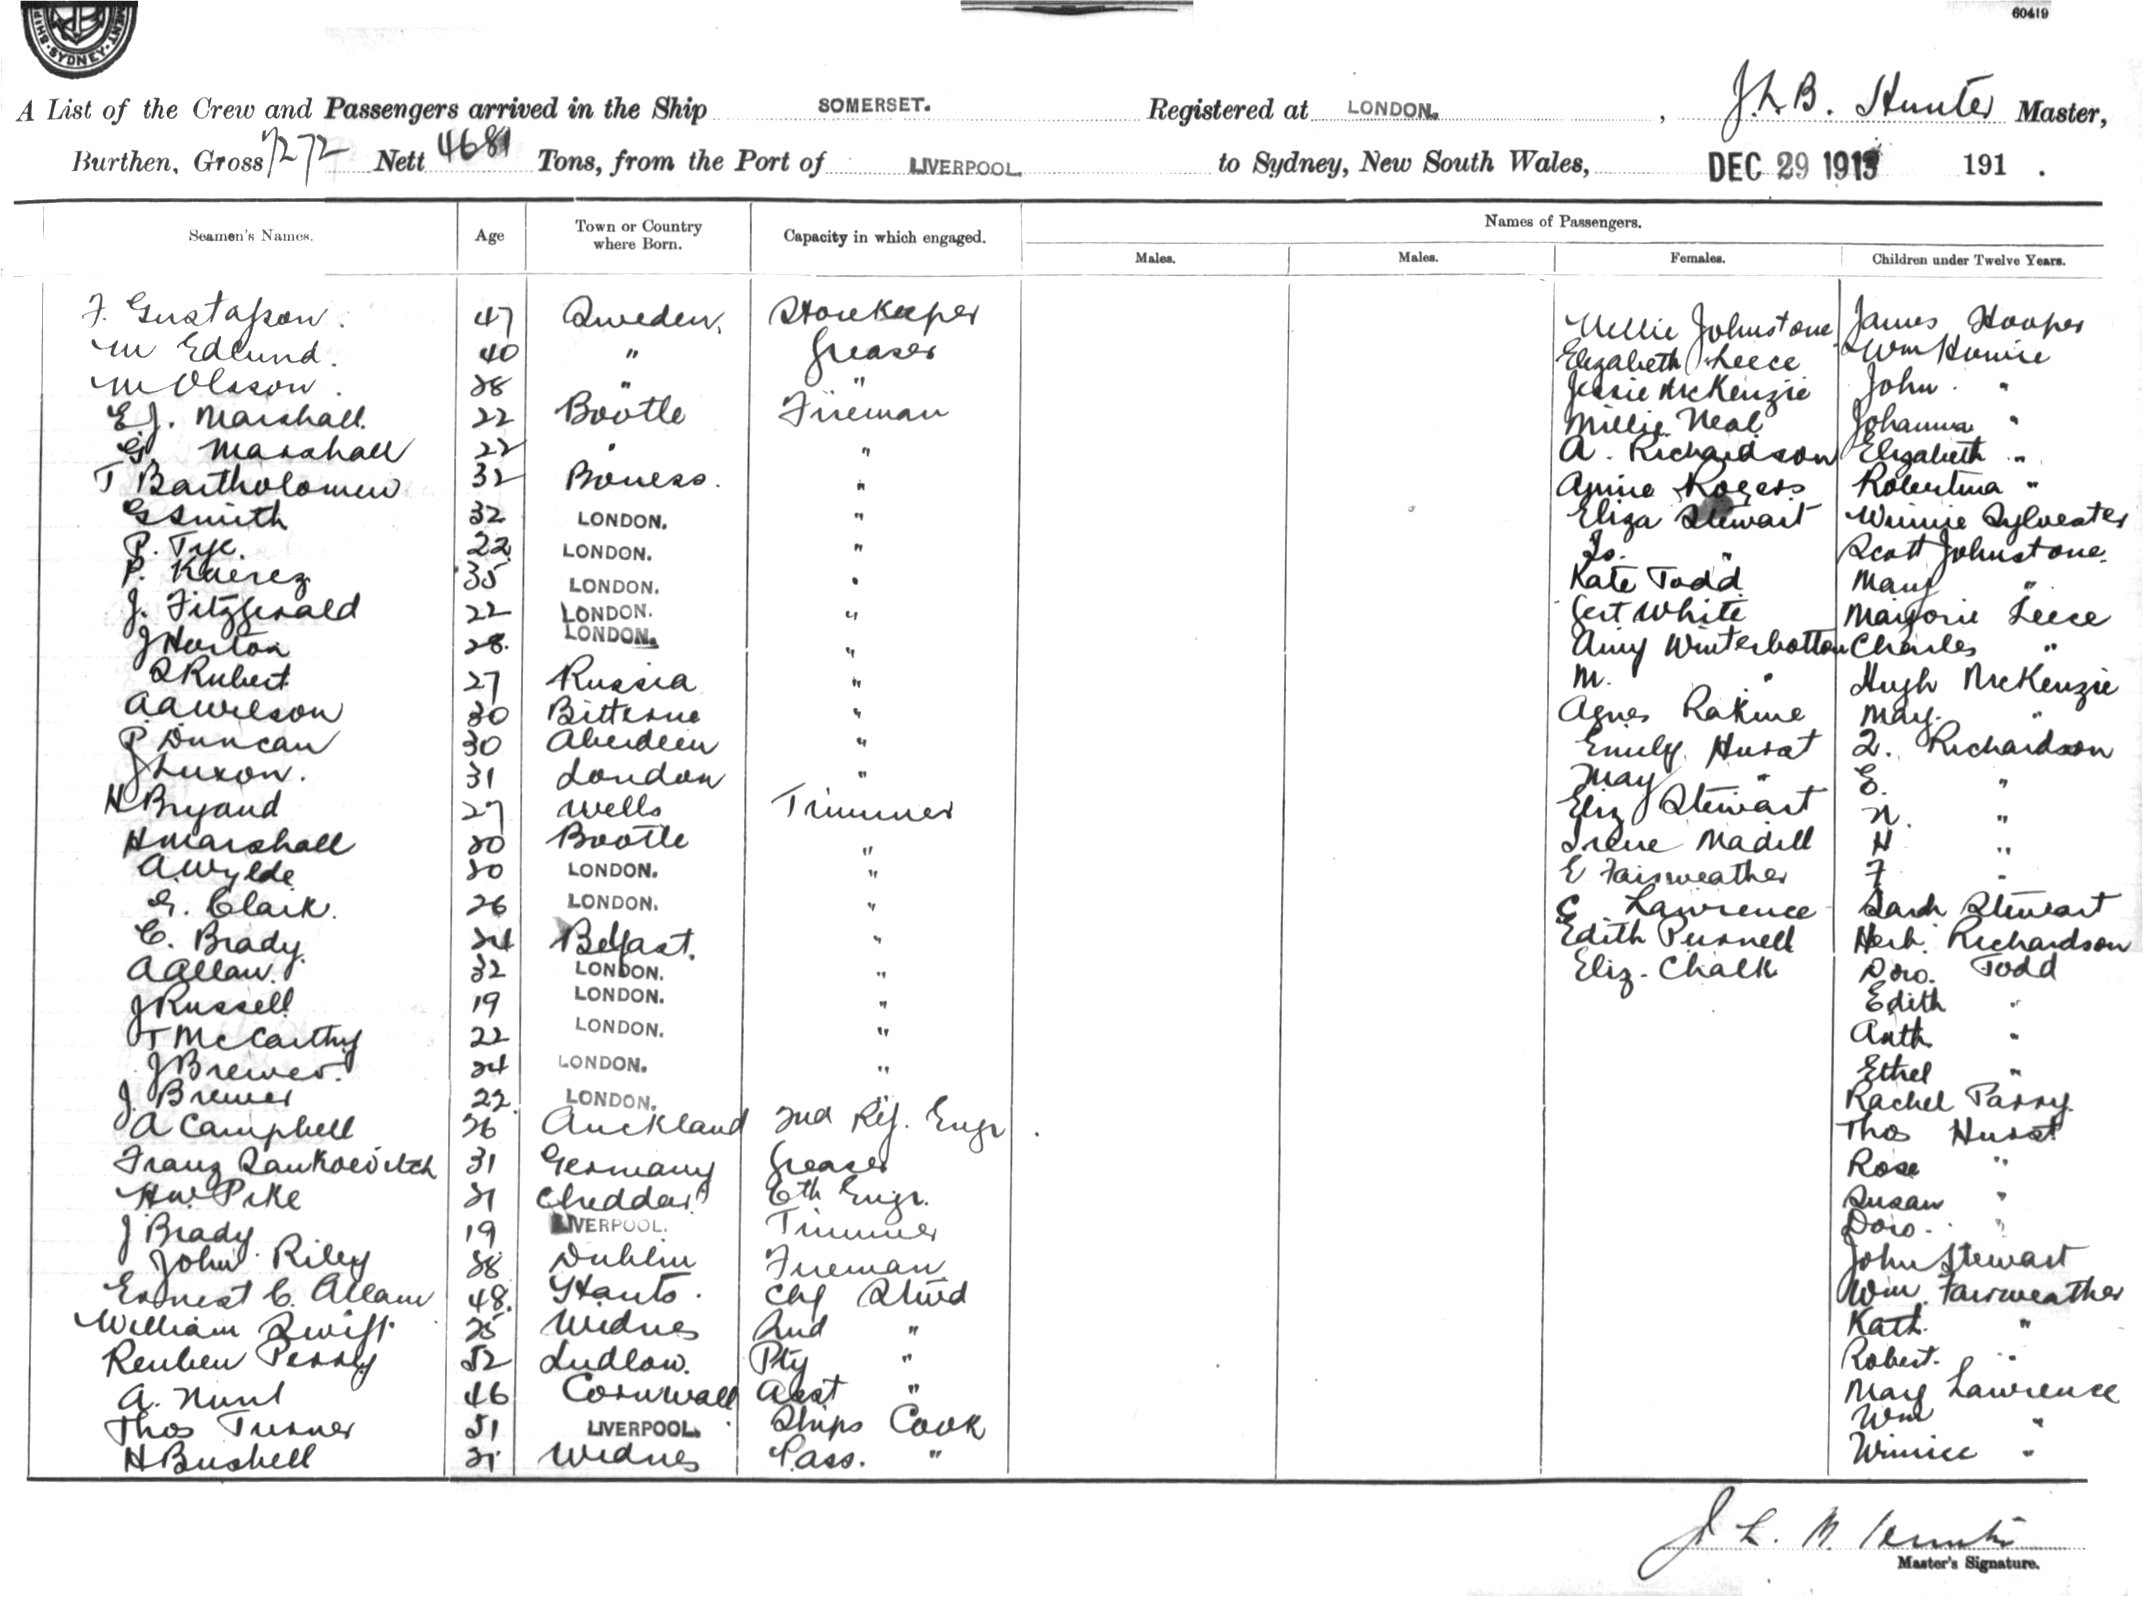 60419
SHIP
SYDNEY
A List of the Crew and Passengers arrived in the Ship SOMERSET. Registered at LONDON. , J. L. B. Hunter Master,
Burthen, Gross 7272 Nett 4681 Tons, from the Port of LIVERPOOL. to Sydney, New South Wales, DEC 29 1913 191 .
Names of Passengers.
Seamen's Names. Age Town or Country where Born. Capacity in which engaged. Males. Males. Females. Children under Twelve Years.
F. Gustafson. 47 Sweden. Storekeeper Nellie Johnstone James Hooper
M Edlund. 40 " Greaser Elizabeth Leece Wm Howie
M Olsson. 38 " " Jessie McKenzie John "
E. J. Marshall. 22 Bootle Fireman Millie Neal Johanna "
G. Marshall 22 " " A. Richardson Elizabeth "
T Bartholomew 32 Boness. " Annie Rogers Robertina "
G Smith 32 LONDON. " Eliza Stewart Winnie Sylvester
P. Tye. 22 LONDON. " Is. " Scott Johnstone.
P. 35 LONDON. " Kate Todd Mary "
J. Fitzgerald 22 LONDON. " Gert White Marjorie Leece
J Horton 28. LONDON. " Amy Winterbottom Charles "
Rubert 27 Russia " M. " Hugh McKenzie
A A Wilson 30 Bitterne " Agnes Rakine Mary. "
P Duncan 30 Aberdeen " Emily Hurst 2. Richardson
J Luxon. 31 London " May " E. "
H Bryand 27 Wells Trimmer Eliz Stewart N. "
H Marshall 20 Bootle " Irene Madill H "
A. Wylde 20 LONDON. " E Fairweather F "
G. Clark. 26 LONDON. " C Lawrence Sarah Stewart
C. Brady. 24 Belfast. " Edith Purnell Herb. Richardson
A Allan. 32 LONDON. " Eliz. Chalk Doro. Todd
J Russell 19 LONDON. " Edith "
T McCarthy 22 LONDON. " Anth. "
J Brewer. 24 LONDON. " Ethel "
J. Bremer 22. LONDON. " Rachel Parry.
A Campbell 26 Auckland 2nd Rif. Engr. Thos Hurst
Franz 31 Germany Greaser Rose "
H W Pike 21 Cheddar 6th Engr. Susan "
J Brady 19 LIVERPOOL. Trimmer Doro. "
John Riley 38 Dublin Fireman John Stewart
Ernest C. Allam 48. Hants. Chf Stwd Wm. Fairweather
William Swift 25 Widnes 2nd " Kath. "
Reuben Perry 52 Ludlow. Pty " Robert. "
A. Hunt 46 Cornwall Asst " Mary Lawrence
Thos Turner 51 LIVERPOOL. Ships Cook Wm "
H Bushell 21 Widnes Pass. " Winnie "
Master's Signature.